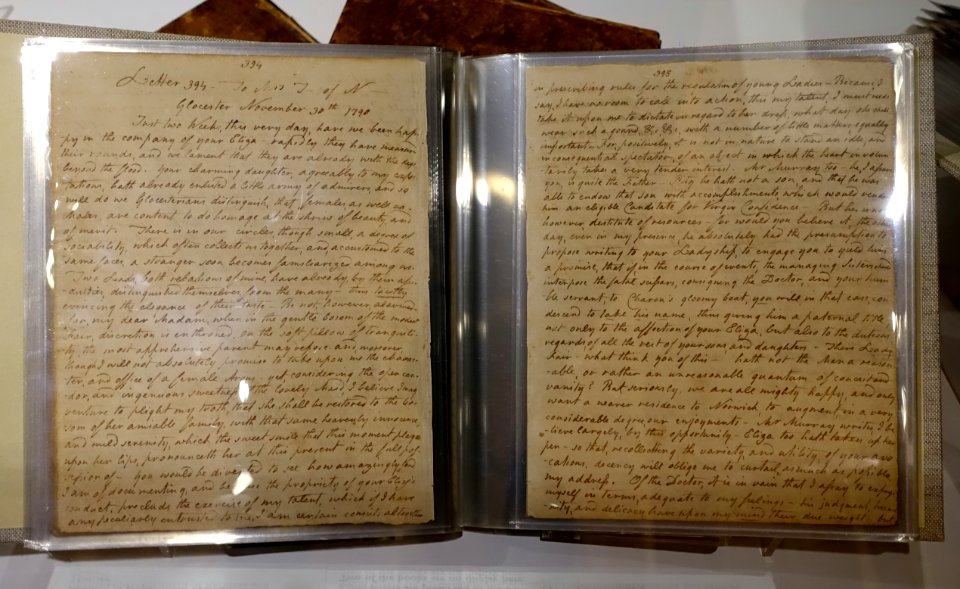 394
Letter 394 To Mrs T- of N
Glocester November 30th 1790
Just two Weeks, this very day, have we been hap-
py in the company of your Eliza - rapidly they have
their rounds, and we lament that they are already with the days
beyond the flood. Your charming daughter, agreeably to my expec-
tations, hath already enlisted a little army of admirers, and so
well do we Glocesterians distinguish, that females, as well as
males, are content to do homage at the shrine of beauty, and
of merit. There is in our circles, though small a degree of
sociability, which often collects us together, and accustomed to the
same faces, a stranger soon becomes familiarized among us.
Two Lads, both relations of mine, have already, by their
distinguished themselves from the many - thus
evincing the of their taste - Be not, however alarmed
for, my dear Madam, when in the gentle bosom of the
fair, discretion is enthroned, on the soft pillow of tranquili-
ty, the most apprehensive parent may repose and moreover,
though I will not absolutely promise to take upon me the charac-
ter, and office of a female - yet considering the open can-
dor, and ingenious sweetness of the lovely Maid, I believe I may
venture to plight my troth, that she shall be restored to the bo-
som of her amiable family, with that same heavenly innocence,
and mild serenity, which the sweet smile that this moment plays
upon her lips, pronounceth her at this present in the full pos-
session of - you would be diverted to see how amazingly fond
I am of documenting, and because the propriety of your Eliza's
conduct, precludes the exercise of my talent which if I have
any peculiarly entrusted to me, I am certain consists altogether
395
in prescribing rules for the regulation of young Ladies - Because, I
say, I have no room to call into action, this my talent, I must needs
take it upon me to dictate in regard to her dress, what day she shall
wear such a gown, &c, &c, with a number of little matters equally
important. For, positively, it is not in nature to stand an idle, and
inconsequential spectator, of an object in which the heart involun-
tarily take a very tender interest. Mr Murray too, he
you, is quite the Father. Pity he hath not a son, and that he was
able to endow that son with accomplishments which would render
him an eligible Candidate for Virgin Confidence - But he is not
however, destitute of resources - for would you believe it, the other
day, even in my presence, he absolutely had the presumption to
propose writing to your Ladyship, to engage you to yield him
a promise, that if in the course of events, the managing Sisters
interpose the fatal scissars, consigning the Doctor, and your hum-
ble servant, to Charon's gloomy boat, you will in that case, con-
descend to take his name, thus giving him a paternal title,
not only to the affection of your Eliza, but also to the duteous
regards of all the rest of your sons and daughters - There Lady
fair - what think you of this - hath not the Man a reason-
able, or rather an unreasonable quantum of conceit and
vanity? But seriously, we are all mighty happy, and only
want a nearer residence to Norwich to augment in a very
considerable degree our enjoyments - Mr Murray writes, I be-
lieve largely, by this opportunity - Eliza too hath taken up her
pen - so that, recollecting the variety, and utility, of your avo-
cations, decency will oblige me to curtail, as much as possible,
my address. Of the Doctor, it is in vain that I assay to express
myself in terms, adequate to my feelings - his judgment,
and delicacy have upon my mind their due weight - but